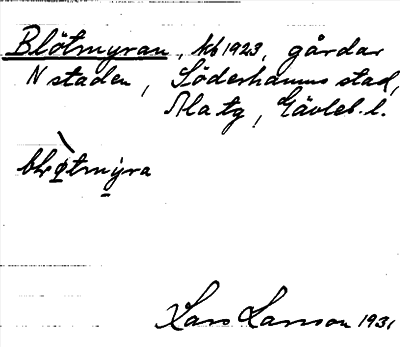 Blötmyran, kb 1923, gårdar
N staden, Söderhamns stad,
Ala tg, Gävleb. l.
Lars Larsson 1931